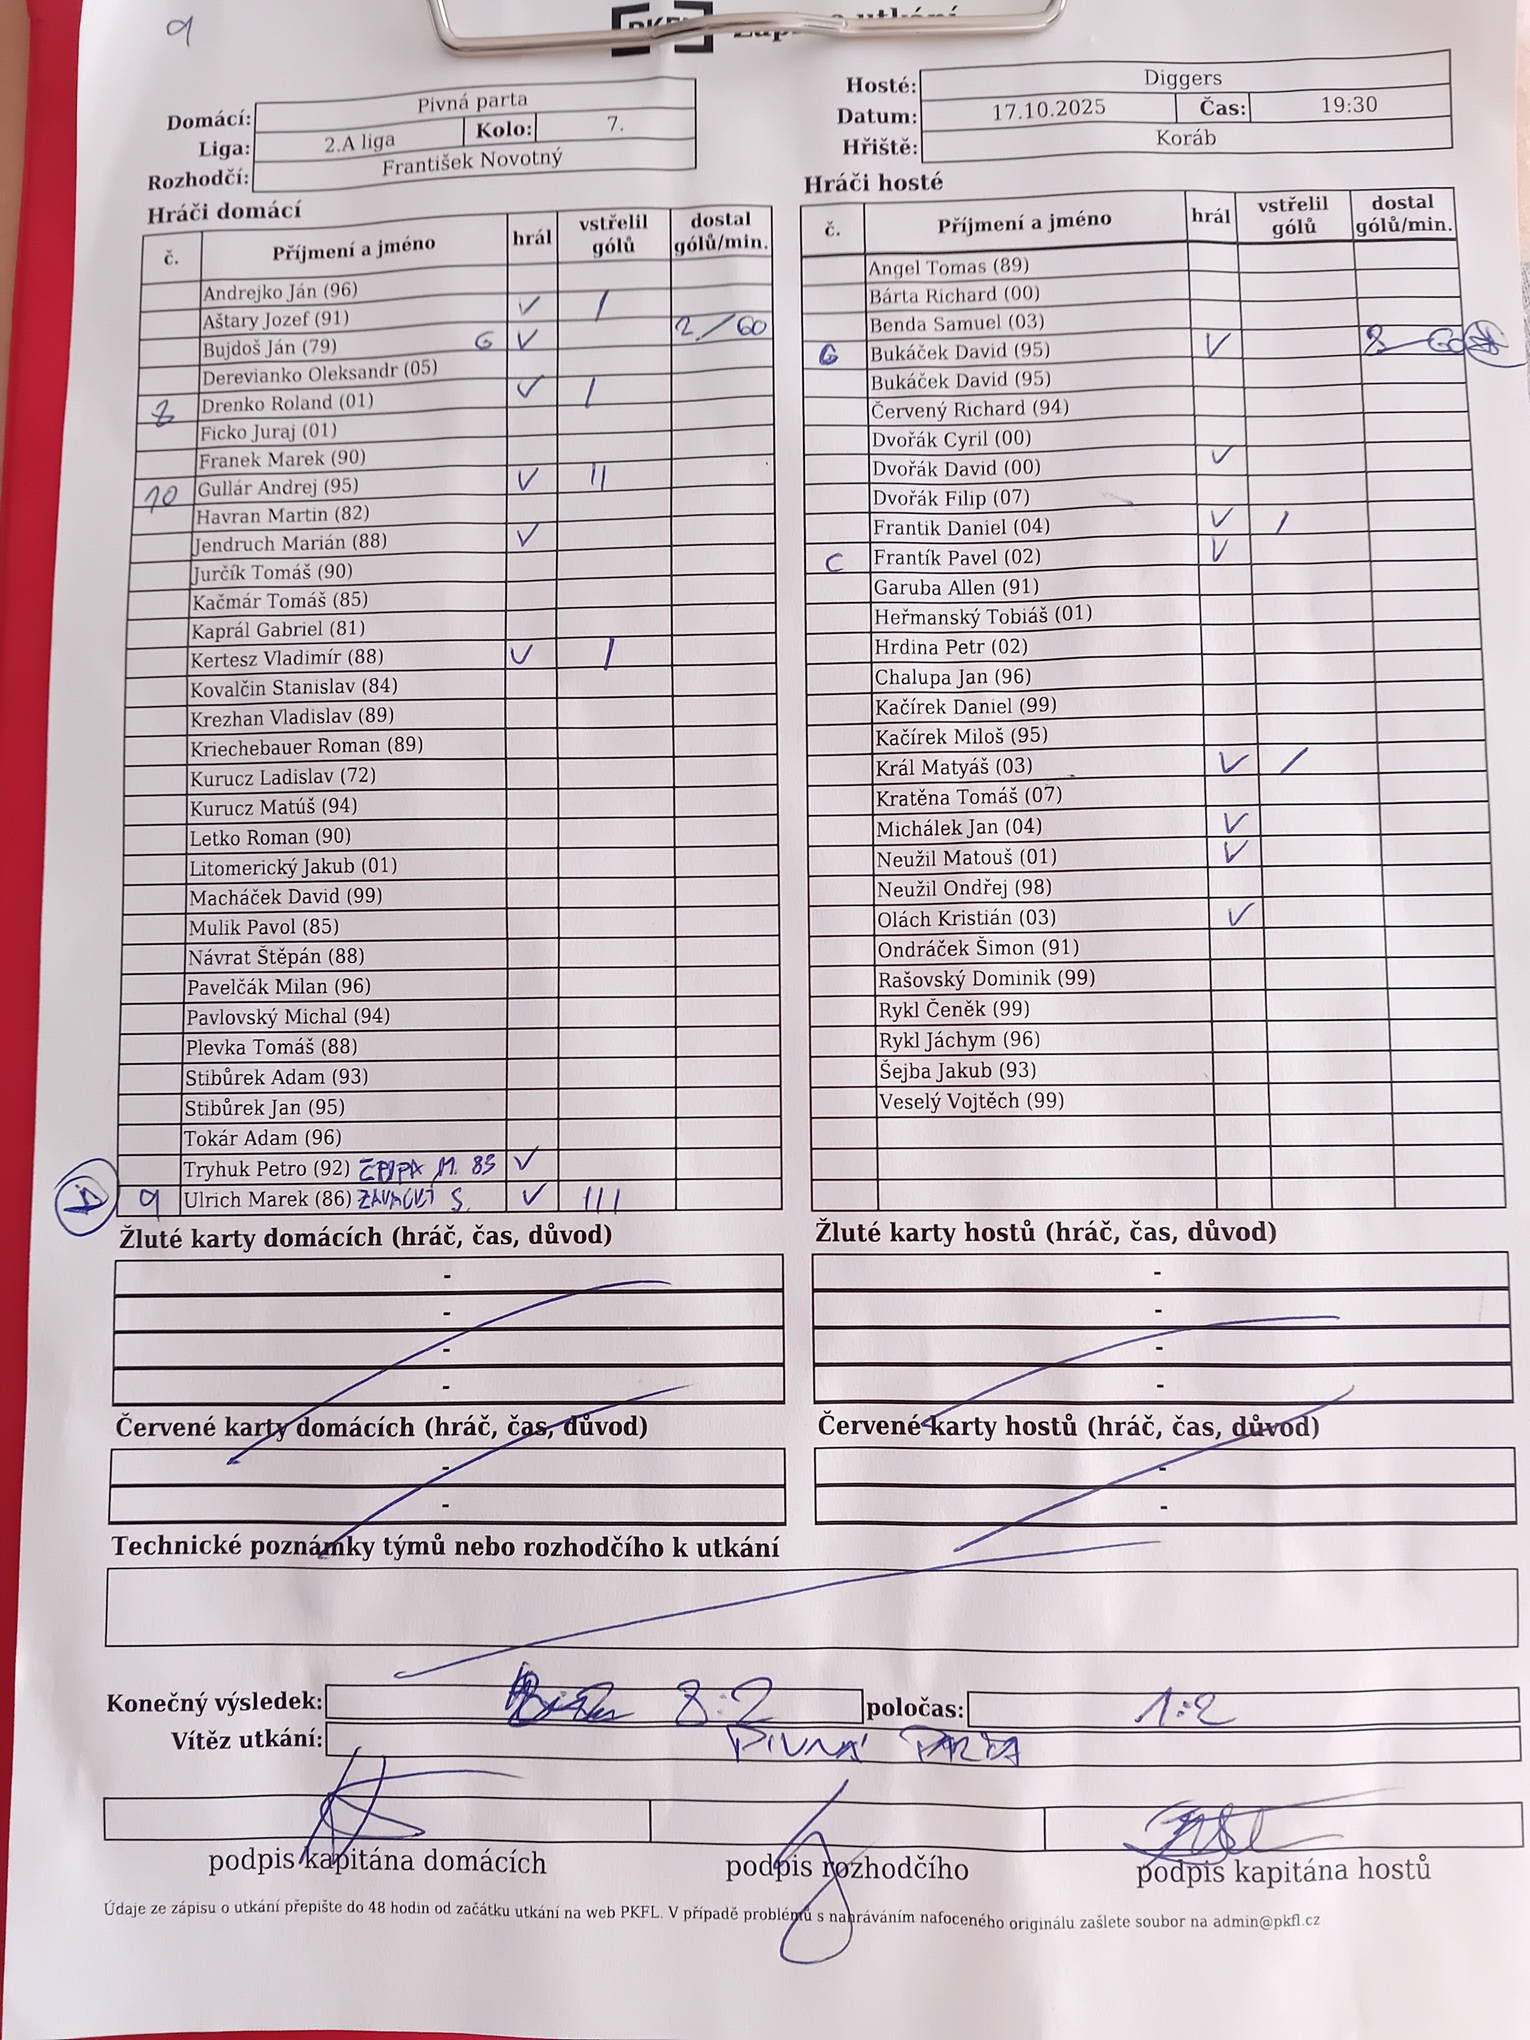 9
PKFL Zápis o utkání
Domácí: Pivná parta
Liga: 2.A liga Kolo: 7.
Rozhodčí: František Novotný
Hosté: Diggers
Datum: 17.10.2025 Čas: 19:30
Hřiště: Koráb
Hráči domácí
č. Příjmení a jméno hrál vstřelil gólů dostal gólů/min.
Andrejko Ján (96)
Aštary Jozef (91) V I
Bujdoš Ján (79) G V 2/60
Derevianko Oleksandr (05)
8 Drenko Roland (01) V I
Ficko Juraj (01)
Franek Marek (90)
10 Gullár Andrej (95) V II
Havran Martin (82)
Jendruch Marián (88) V
Jurčík Tomáš (90)
Kačmár Tomáš (85)
Kaprál Gabriel (81)
Kertesz Vladimír (88) V I
Kovalčin Stanislav (84)
Krezhan Vladislav (89)
Kriechebauer Roman (89)
Kurucz Ladislav (72)
Kurucz Matúš (94)
Letko Roman (90)
Litomerický Jakub (01)
Macháček David (99)
Mulik Pavol (85)
Návrat Štěpán (88)
Pavelčák Milan (96)
Pavlovský Michal (94)
Plevka Tomáš (88)
Stibůrek Adam (93)
Stibůrek Jan (95)
Tokár Adam (96)
Tryhuk Petro (92) M. 85 V
9 Ulrich Marek (86) S. V III
Hráči hosté
č. Příjmení a jméno hrál vstřelil gólů dostal gólů/min.
Angel Tomas (89)
Bárta Richard (00)
Benda Samuel (03)
G Bukáček David (95) V 8 60
Bukáček David (95)
Červený Richard (94)
Dvořák Cyril (00)
Dvořák David (00) V
Dvořák Filip (07)
Frantik Daniel (04) V I
C Frantík Pavel (02) V
Garuba Allen (91)
Heřmanský Tobiáš (01)
Hrdina Petr (02)
Chalupa Jan (96)
Kačírek Daniel (99)
Kačírek Miloš (95)
Král Matyáš (03) V I
Kratěna Tomáš (07)
Michálek Jan (04) V
Neužil Matouš (01) V
Neužil Ondřej (98)
Olách Kristián (03) V
Ondráček Šimon (91)
Rašovský Dominik (99)
Rykl Čeněk (99)
Rykl Jáchym (96)
Šejba Jakub (93)
Veselý Vojtěch (99)
Žluté karty domácích (hráč, čas, důvod)
-
-
-
-
Žluté karty hostů (hráč, čas, důvod)
-
-
-
-
Červené karty domácích (hráč, čas, důvod)
-
-
Červené karty hostů (hráč, čas, důvod)
-
-
Technické poznámky týmů nebo rozhodčího k utkání
Konečný výsledek: 8:2 poločas: 1:2
Vítěz utkání: PIVNÁ PARTA
podpis kapitána domácích podpis rozhodčího podpis kapitána hostů
Údaje ze zápisu o utkání přepište do 48 hodin od začátku utkání na web PKFL. V případě problémů s nahráváním nafoceného originálu zašlete soubor na admin@pkfl.cz